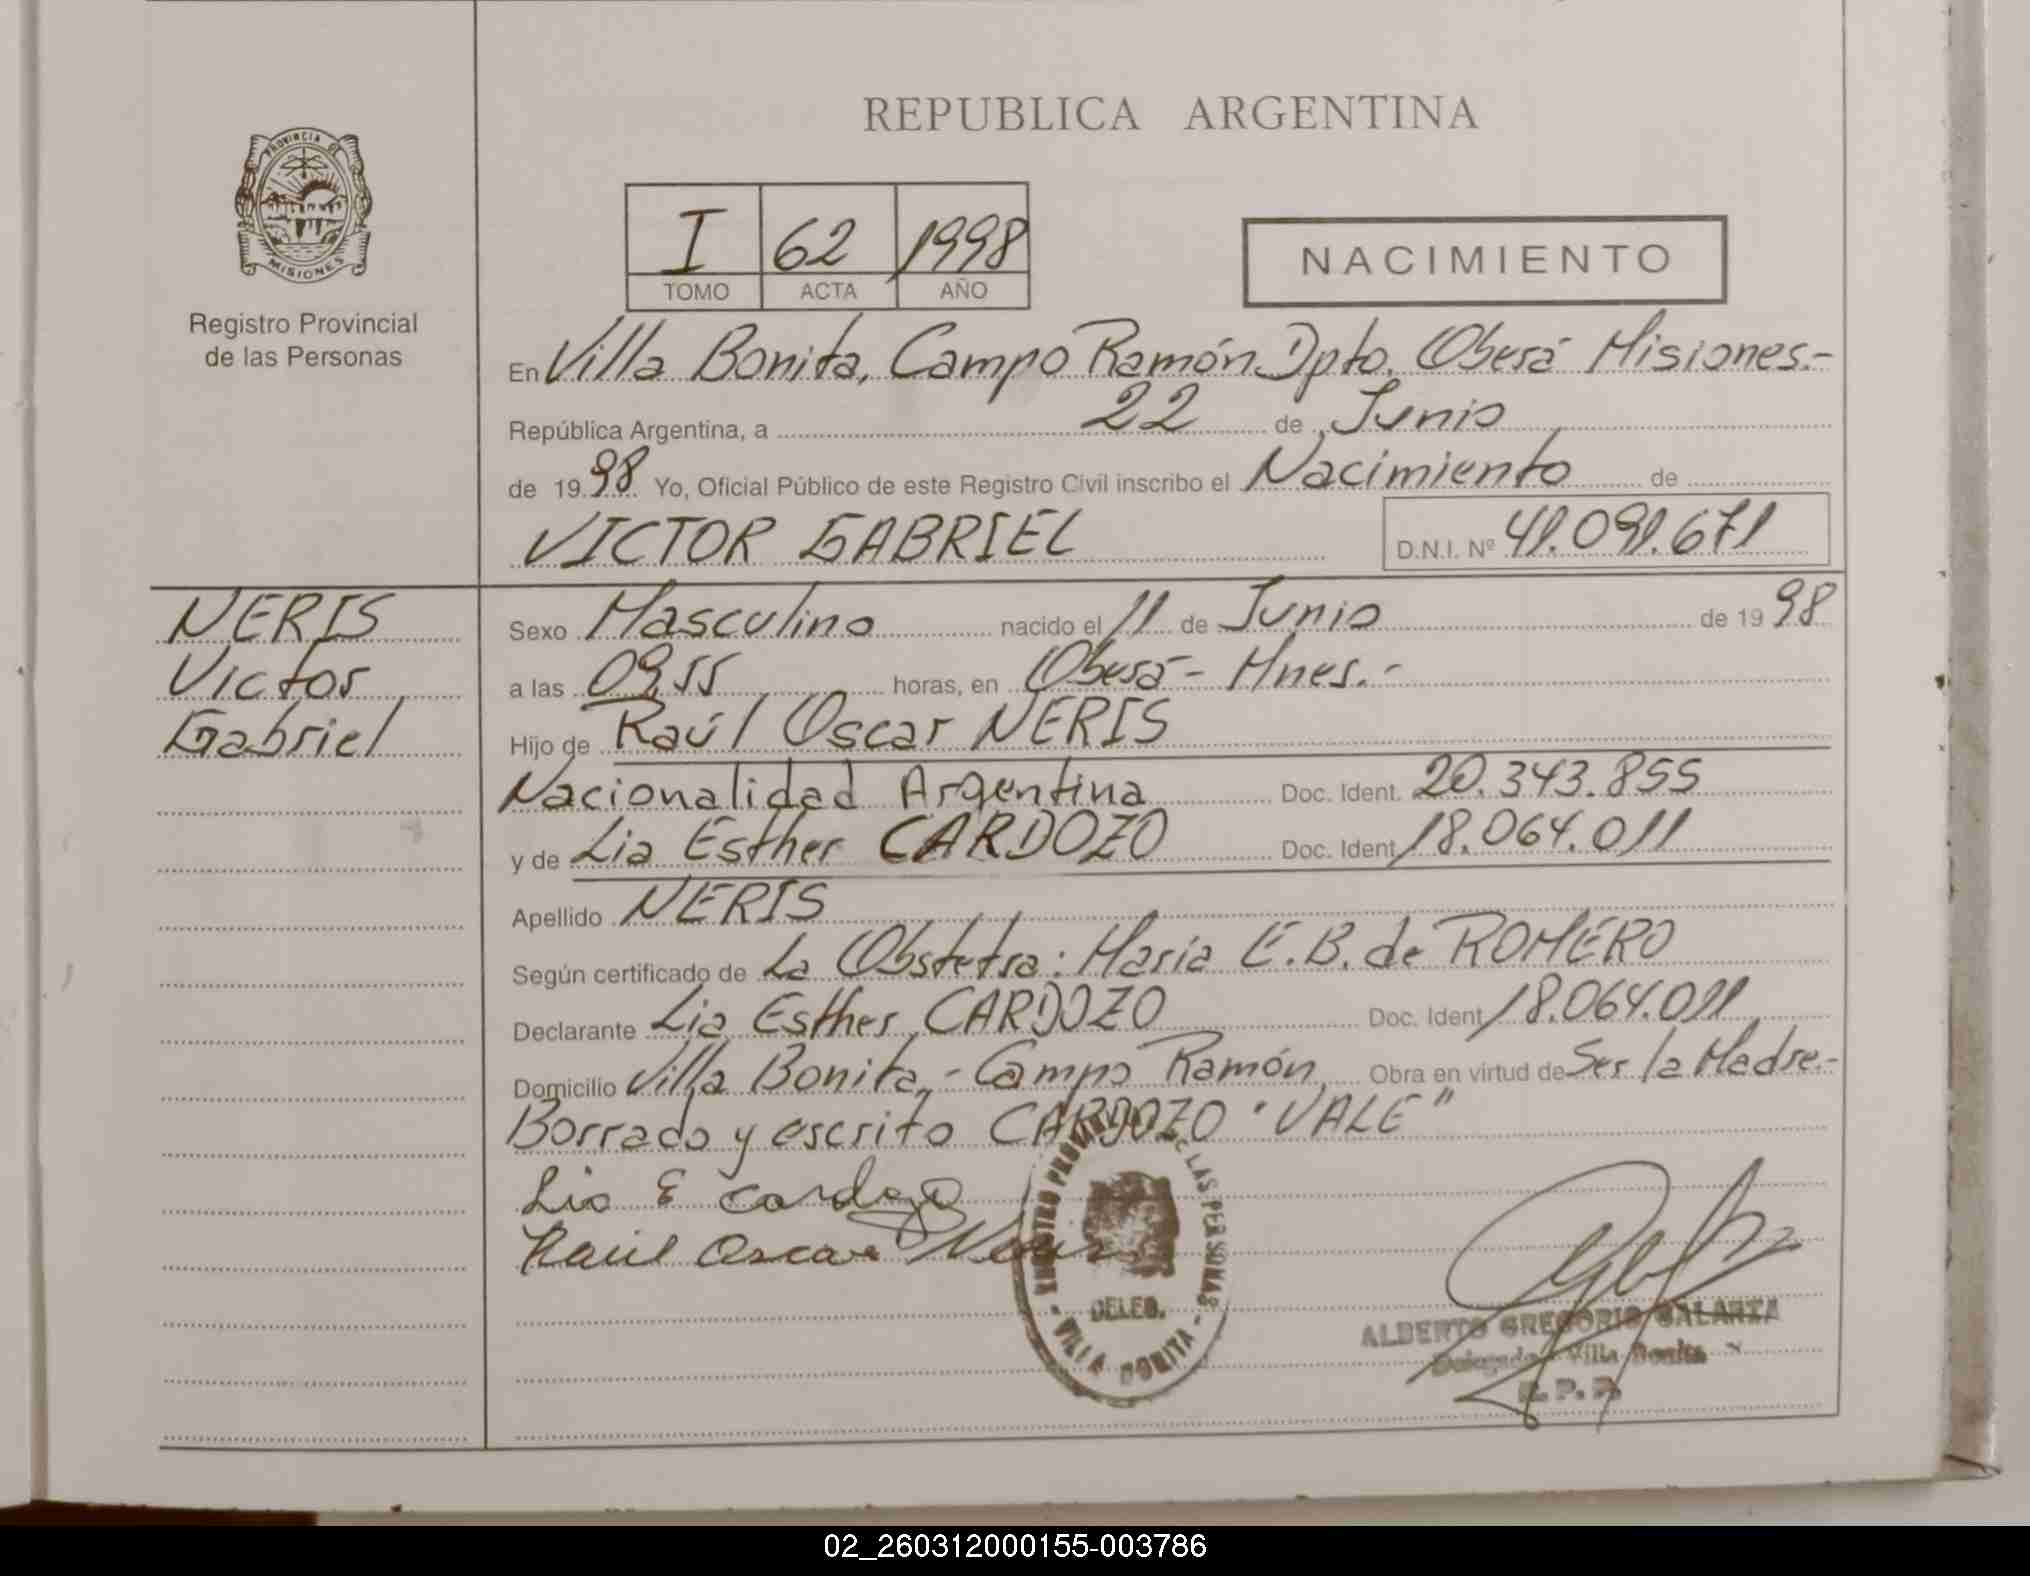 REPUBLICA ARGENTINA
PROVINCIA DE
MISIONES
Registro Provincial
de las Personas
I 62 1998
TOMO ACTA AÑO
NACIMIENTO
En Villa Bonita, Campo Ramón Dpto. Oberá Misiones.-
República Argentina, a 22 de Junio
de 1998 Yo, Oficial Público de este Registro Civil inscribo el Nacimiento de
VICTOR GABRIEL D.N.I. Nº 41.091.671
NERIS
Victor
Gabriel
Sexo Masculino nacido el 11 de Junio de 1998
a las 09,55 horas, en Oberá - Mnes.-
Hijo de Raúl Oscar NERIS
Nacionalidad Argentina Doc. Ident. 20.343.855
y de Lia Esther CARDOZO Doc. Ident. 18.064.011
Apellido NERIS
Según certificado de La Obstetra: Maria E.B. de ROMERO
Declarante Lia Esther CARDOZO Doc. Ident. 18.064.011
Domicilio Villa Bonita,- Campo Ramón Obra en virtud de Ser la Madre.-
Borrado y escrito CARDOZO "VALE"
Lia E Cardozo
Raul Oscar Neris
REGISTRO PROVINCIAL DE LAS PERSONAS
DELEG.
- VILLA BONITA -
ALBERTO GREGORIO GALARZA
Delegado Villa Bonita
R.P.P.
02_260312000155-003786